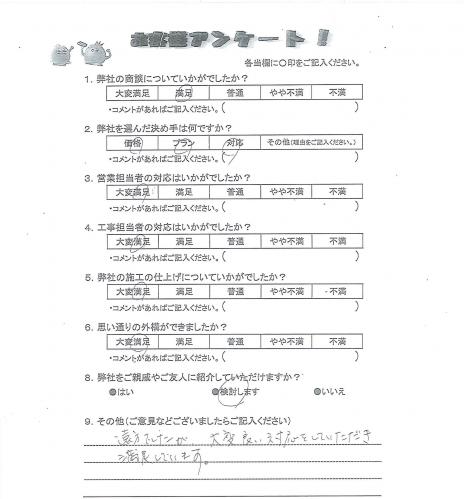 お客様アンケート！
各当欄に〇印をご記入ください。
1. 弊社の商談についていかがでしたか？
大変満足 満足 普通 やや不満 不満
・コメントがあればご記入ください。( )
2. 弊社を選んだ決め手は何ですか？
価格 プラン 対応 その他（理由をご記入ください。）
・コメントがあればご記入ください。( )
3. 営業担当者の対応はいかがでしたか？
大変満足 満足 普通 やや不満 不満
・コメントがあればご記入ください。( )
4. 工事担当者の対応はいかがでしたか？
大変満足 満足 普通 やや不満 不満
・コメントがあればご記入ください。( )
5. 弊社の施工の仕上げについていかがでしたか？
大変満足 満足 普通 やや不満 不満
・コメントがあればご記入ください。( )
6. 思い通りの外構ができましたか？
大変満足 満足 普通 やや不満 不満
・コメントがあればご記入ください。( )
8. 弊社をご親戚やご友人に紹介していただけますか？
●はい ●検討します ●いいえ
9. その他（ご意見などございましたらご記入ください）
遠方でしたが 大変良い対応をしていただき
満足しています。